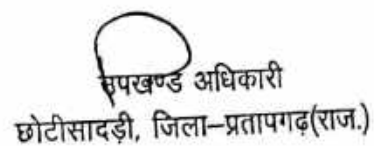 उपखण्ड अधिकारी
छोटीसादड़ी, जिला–प्रतापगढ़(राज.)